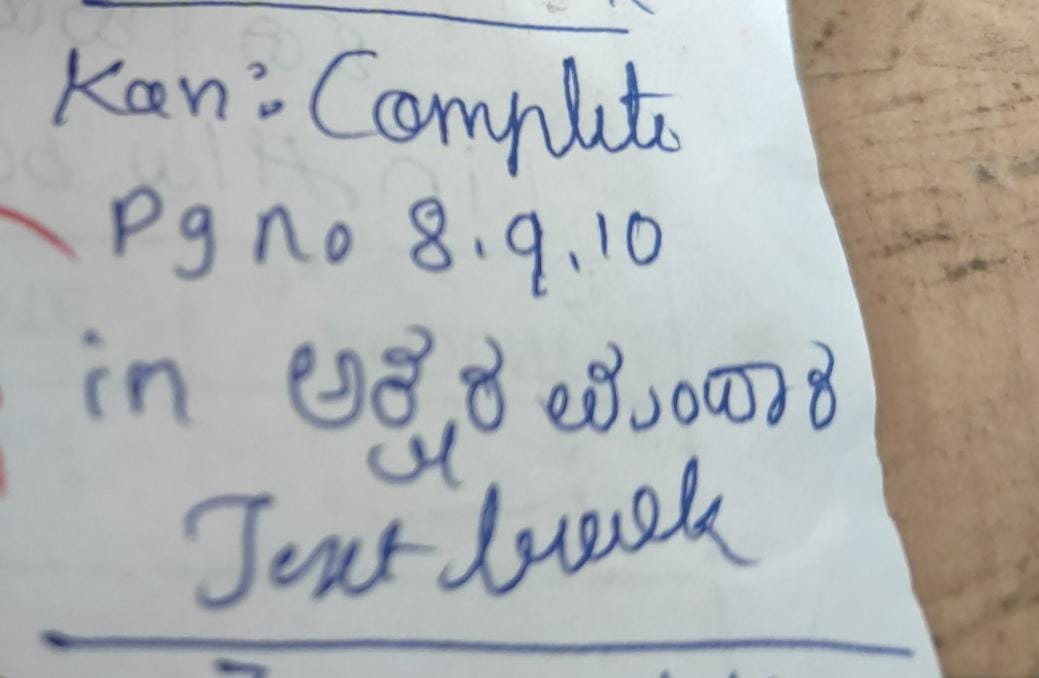 Kan: Complete
Pg no 8.9.10
in ಅಕ್ಷರ ಮಂದಾರ
Text book